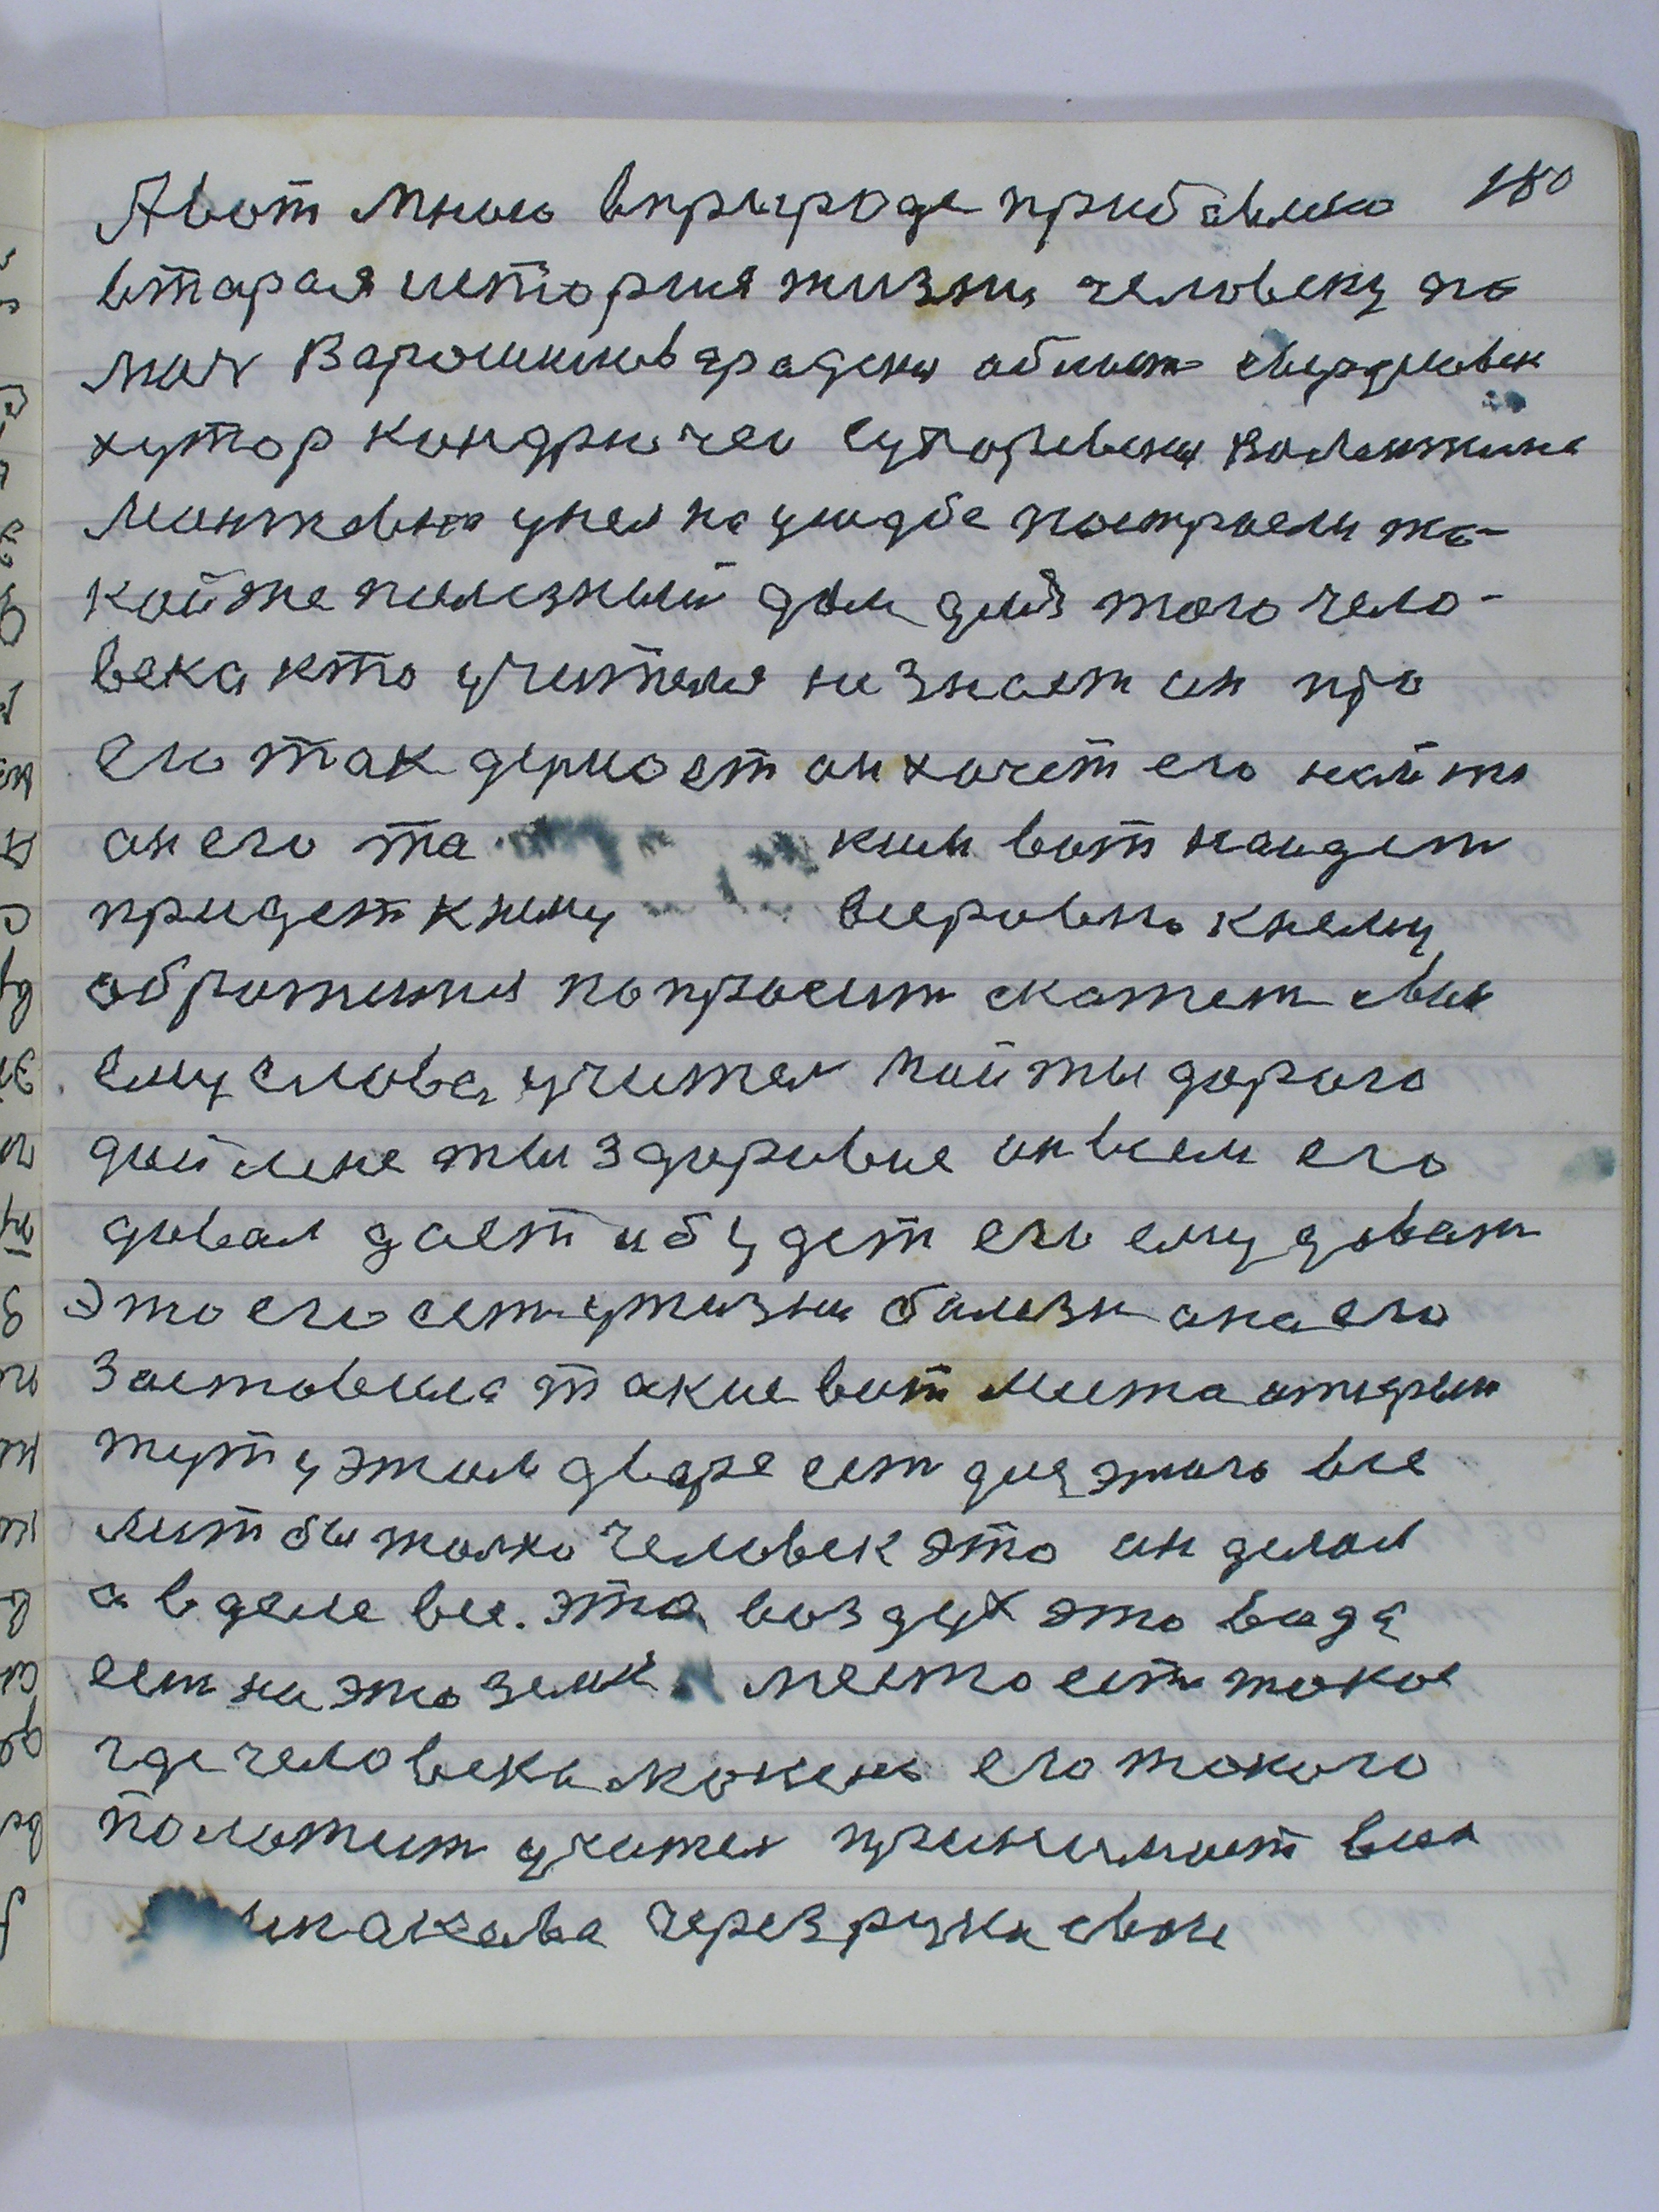 Авот мною вприроде прибавлено 180
втарая история жизни человеку по
моч Варошиловградский област свердловск
хутор кондрючее Сухоревский Волентина
Леонтевна унея на усадбе построели та-
койже полезный дом для того чело-
века кто учителя не знает он про
его так думает он хочет его найти
он его та ким вот находит
придет кнему всеровно кнему
обротится попросит скажет свои
ему слова, учител мой ты дорого
дай мене ты здоровие он всем его
довал дает и будет его ему доват
Это его ест у жизни болезн она его
Заставила такие вот места открыт
тут у этом дваре ест для этого все
лиш бы толко человек это он делал
а в деле все. это воздух это вода
ест на это земля место ест такое
где человека можно его такого
положит учител принимает всех
инакава через руки свои